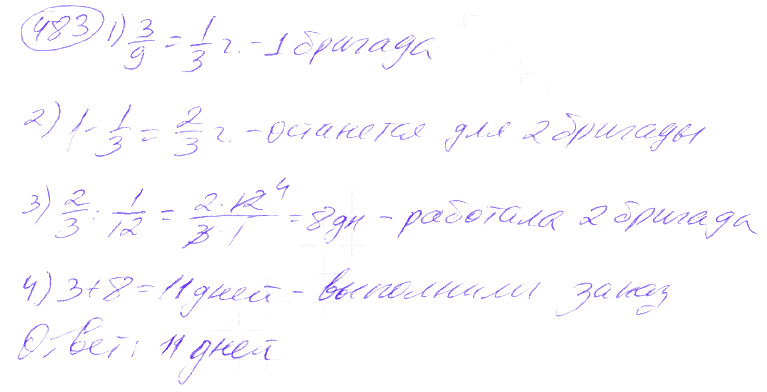 483 1) 3/9 = 1/3 ч. - 1 бригада
2) 1 - 1/3 = 2/3 ч. - останется для 2 бригады
3) 2/3 : 1/12 = 2·12⁴/3·1 = 8дн - работала 2 бригада
4) 3+8=11дней - выполнили заказ
Ответ: 11 дней